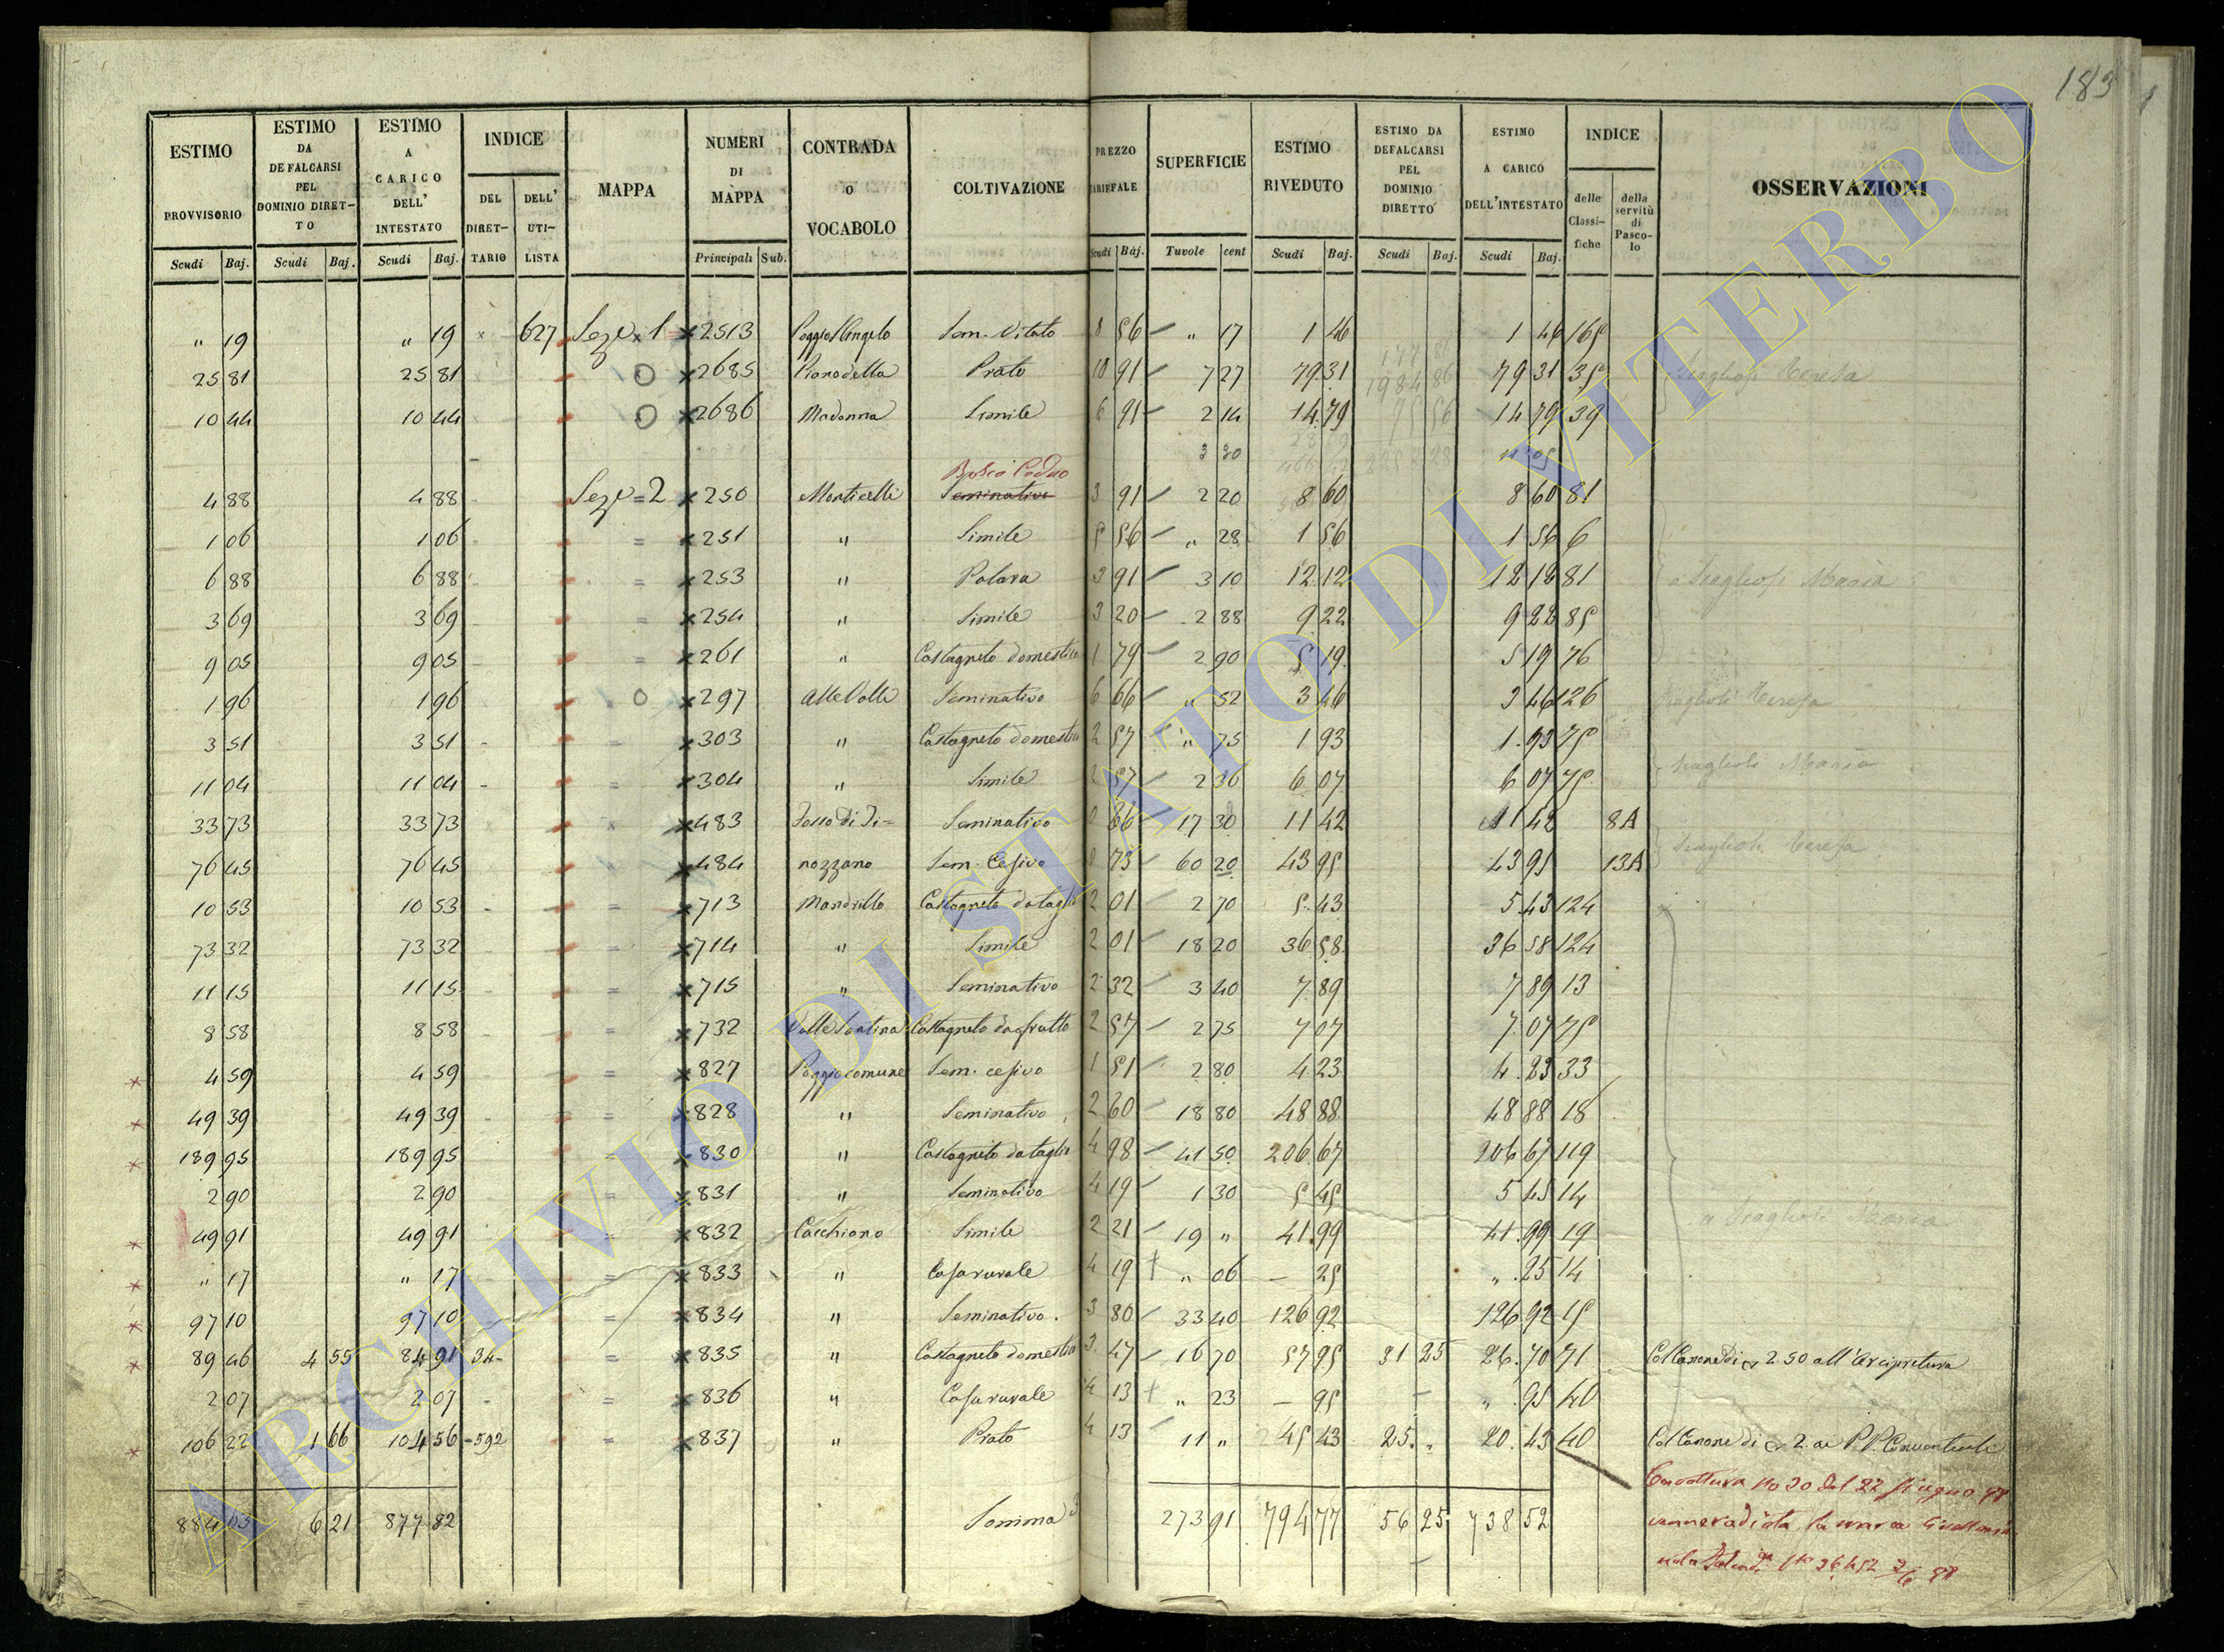 183
ESTIMO PROVVISORIO | ESTIMO DA DEFALCARSI PEL DOMINIO DIRET-TO | ESTIMO A CARICO DELL' INTESTATO | INDICE DEL DIRET-TARIO | DELL' UTI-LISTA | MAPPA | NUMERI DI MAPPA | CONTRADA O VOCABOLO | COLTIVAZIONE | PREZZO TARIFFALE | SUPERFICIE | ESTIMO RIVEDUTO | ESTIMO DA DEFALCARSI PEL DOMINIO DIRETTO | ESTIMO A CARICO DELL'INTESTATO | INDICE delle Classi-fiche | della servitù di Pasco-lo | OSSERVAZIONI
Scudi | Baj. | Scudi | Baj. | Scudi | Baj. | Principali | Sub. | Scudi | Baj. | Tavole | cent | Scudi | Baj. | Scudi | Baj. | Scudi | Baj.
" 19 | " 19 | 627 | Sez. 1 | 2513 | Poggio S Angelo | Sem. Vitato | 8 56 | " 17 | 1 46 | 1 46 | 165
25 81 | 25 81 | O | 2685 | Piano della | Prato | 10 91 | 7 27 | 79 31 | 79 31 | 35 | Teresa
10 44 | 10 44 | O | 2686 | Madonna | Simile | 6 91 | 2 14 | 14.79 | 14 79 | 39
3 30
Bosco Ceduo
4 88 | 4 88 | Sez = 2 | 250 | Monticelli | Seminativo | 3 91 | 2 20 | 8 60 | 8 60 | 81
1 06 | 1 06 | = | 251 | " | Simile | 5 56 | " 28 | 1 56 | 1 56 | 6
6 88 | 6 88 | = | 253 | " | 3 91 | 3 10 | 12.12 | 12 12 | 81 | Maria
3 69 | 3 69 | = | 254 | " | Simile | 3 20 | 2 88 | 9 22 | 9 22 | 85
9 05 | 9 05 | = | 261 | " | Castagneto domestico | 1 79 | 2 90 | 5 19 | 5 19 | 76
1 96 | 1 96 | O | 297 | alle Valli | Seminativo | 6 66 | " 52 | 3 46 | 3 46 | 126 | Teresa
3 51 | 3 51 | = | 303 | " | Castagneto domestico | 2 57 | " 75 | 1 93 | 1.93 | 75
11 04 | 11 04 | = | 304 | " | Simile | 2 57 | 2 36 | 6 07 | 6 07 | 75 | Maria
33 73 | 33 73 | 483 | Seminativo | 0 66 | 17 30 | 11 42 | 11 42 | 8A
76 45 | 76 45 | 484 | nozzano | Sem. Cesivo | 0 73 | 60 20 | 43 95 | 43 95 | 13A | Teresa
10 53 | 10 53 | = | 713 | Mandrillo | Castagneto da taglio | 2 01 | 2 70 | 5.43 | 5.43 | 124
73 32 | 73 32 | = | 714 | " | Simile | 2 01 | 18 20 | 36 58 | 36 58 | 124
11 15 | 11 15 | = | 715 | " | Seminativo | 2 32 | 3 40 | 7.89 | 7 89 | 13
8 58 | 8 58 | = | 732 | Castagneto da frutto | 2 57 | 2 75 | 7 07 | 7.07 | 75
4 59 | 4 59 | = | 827 | Poggio comune | Sem. cesivo | 1 51 | 2 80 | 4.23 | 4.23 | 33
49 39 | 49 39 | = | 828 | " | Seminativo | 2 60 | 18 80 | 48 88 | 48 88 | 18
189 95 | 189 95 | = | 830 | " | Castagneto da taglio | 4 98 | 41 50 | 206.67 | 206 67 | 119
2 90 | 2 90 | = | 831 | " | Seminativo | 4 19 | 1 30 | 5 45 | 5 45 | 14
49 91 | 49 91 | = | 832 | Cacchiano | Simile | 2 21 | 19 " | 41.99 | 41.99 | 19 | Maria
" 17 | " 17 | = | 833 | " | Casa rurale | 4 19 | " 06 | — 25 | " .25 | 14
97 10 | 97 10 | = | 834 | " | Seminativo. | 3 80 | 33 40 | 126 92 | 126.92 | 15
89 46 | 4 55 | 84 91 | 34- | = | 835 | " | Castagneto domestico | 3 47 | 16 70 | 57 95 | 31 25 | 26.70 | 71 | Col Canone di 2.50 all'Arcipretura
2 07 | 2 07 | = | 836 | " | Casa rurale | 4 13 | " 23 | — 95 | — | " .95 | 40
106 22 | 1 66 | 104 56 | -592 | = | 837 | " | Prato | 4 13 | 11 " | 45 43 | 25. " | 20.43 | 40 | Col Canone di 2 ai P.P. Conventuali
884 03 | 6 21 | 877 82 | Somma | 273 91 | 794 77 | 56 25 | 738 52
ARCHIVIO DI STATO DI VITERBO